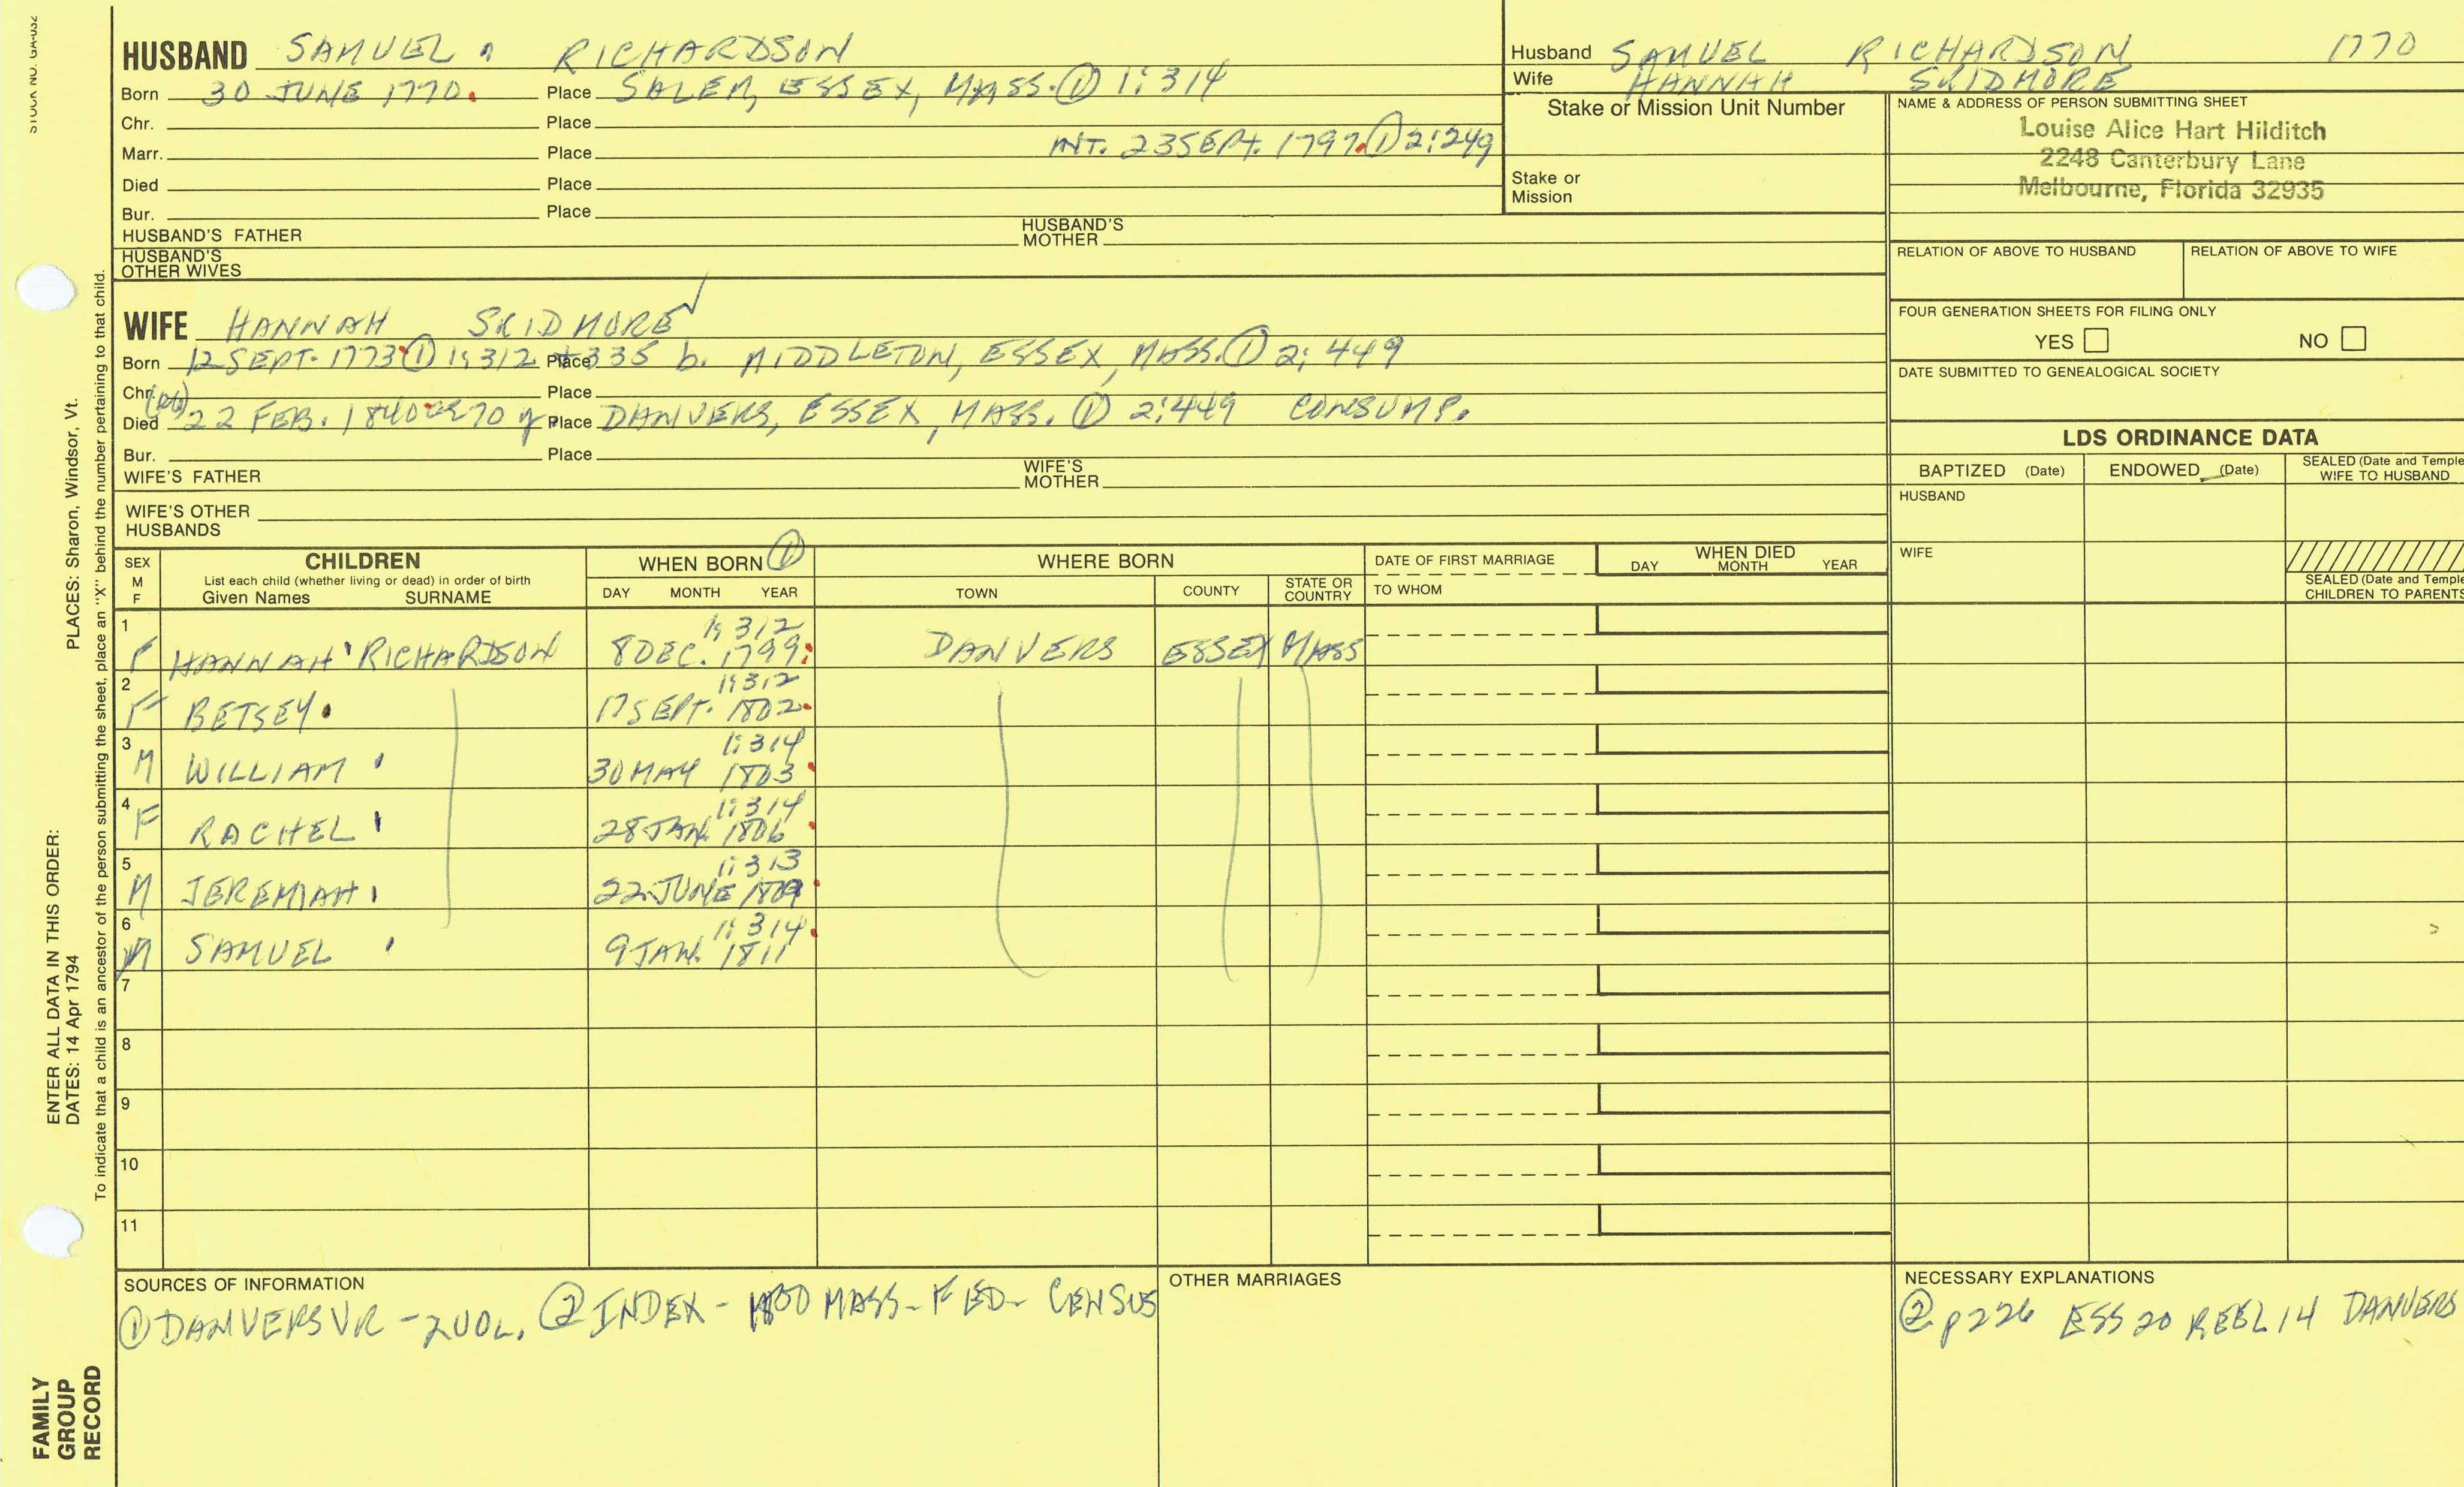 STOCK NO. GA-032
HUSBAND SAMUEL RICHARDSON
Born 30 JUNE 1770. Place SALEM, ESSEX, MASS. ① 1:314
Chr. Place
Marr. Place INT. 23 SEPT. 1797. ① 2:249
Died Place
Bur. Place
HUSBAND'S FATHER HUSBAND'S MOTHER
HUSBAND'S OTHER WIVES
Husband SAMUEL RICHARDSON 1770
Wife HANNAH SKIDMORE
Stake or Mission Unit Number
Stake or Mission
NAME & ADDRESS OF PERSON SUBMITTING SHEET
Louise Alice Hart Hilditch
2248 Canterbury Lane
Melbourne, Florida 32935
RELATION OF ABOVE TO HUSBAND RELATION OF ABOVE TO WIFE
FOUR GENERATION SHEETS FOR FILING ONLY
YES NO
DATE SUBMITTED TO GENEALOGICAL SOCIETY
WIFE HANNAH SKIDMORE
Born 12 SEPT. 1773 ① 1:312 + 335 Place b. MIDDLETON, ESSEX, MASS. ① 2:449
Chr. Place
Died 22 FEB. 1840 70 y Place DANVERS, ESSEX, MASS. ① 2:449 CONSUMP.
Bur. Place
WIFE'S FATHER WIFE'S MOTHER
WIFE'S OTHER HUSBANDS
LDS ORDINANCE DATA
BAPTIZED (Date) ENDOWED (Date) SEALED (Date and Temple) WIFE TO HUSBAND
HUSBAND
WIFE
SEALED (Date and Temple) CHILDREN TO PARENTS
SEX M F CHILDREN WHEN BORN ① WHERE BORN DATE OF FIRST MARRIAGE WHEN DIED
List each child (whether living or dead) in order of birth
Given Names SURNAME DAY MONTH YEAR TOWN COUNTY STATE OR COUNTRY TO WHOM DAY MONTH YEAR
1 F HANNAH RICHARDSON 8 DEC. 1799. 1:312 DANVERS ESSEX MASS
2 F BETSEY 17 SEPT. 1802. 1:312
3 M WILLIAM 30 MAY 1803 1:314
4 F RACHEL 28 JAN. 1806 1:314
5 M JEREMIAH 22 JUNE 1:313
6 M SAMUEL 9 JAN. 1811 1:314
7
8
9
10
11
SOURCES OF INFORMATION
① DANVERS VR - 2 VOL. ② INDEX - 1800 MASS - FED - CENSUS
OTHER MARRIAGES
NECESSARY EXPLANATIONS
② p226 ESS 20 REEL 14 DANVERS
ENTER ALL DATA IN THIS ORDER:
DATES: 14 Apr 1794 PLACES: Sharon, Windsor, Vt.
To indicate that a child is an ancestor of the person submitting the sheet, place an "X" behind the number pertaining to that child.
FAMILY
GROUP
RECORD